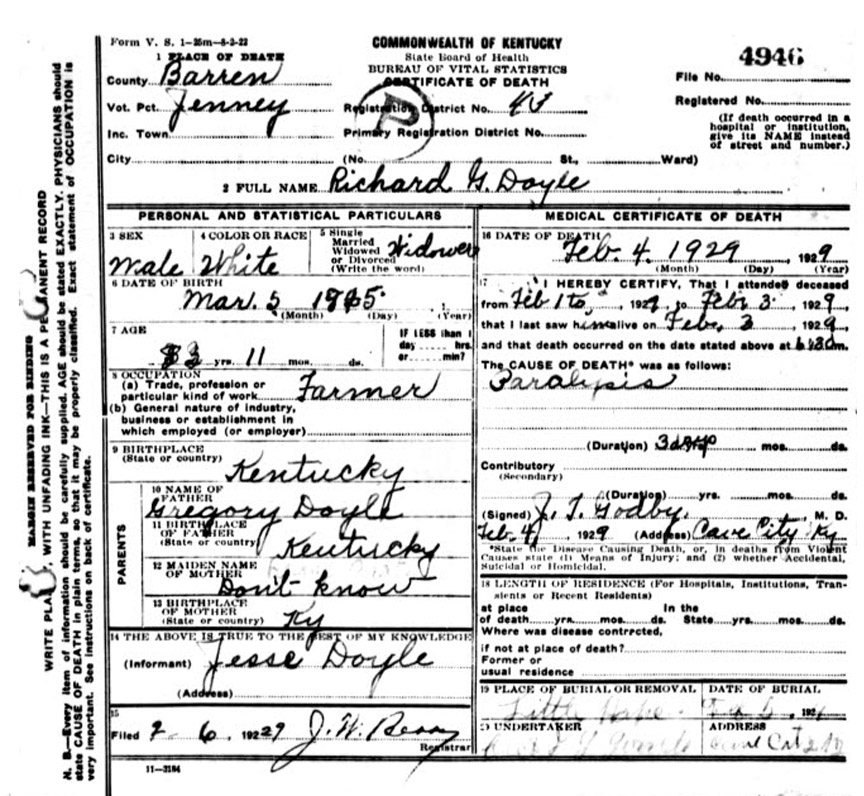 Form V. S. 1—25m—8-2-22
COMMONWEALTH OF KENTUCKY
State Board of Health
BUREAU OF VITAL STATISTICS
CERTIFICATE OF DEATH
4946
File No.
Registered No.
(If death occurred in a hospital or institution, give its NAME instead of street and number.)
1 PLACE OF DEATH
County Barren
Vot. Pct. Jenney
Registration District No. 43
Inc. Town
Primary Registration District No.
City (No. St., Ward)
2 FULL NAME Richard G. Doyle
PERSONAL AND STATISTICAL PARTICULARS
3 SEX
Male
4 COLOR OR RACE
White
5 Single
Married
Widowed
or Divorced
(Write the word)
Widower
6 DATE OF BIRTH
Mar. 5
(Month) (Day) (Year)
7 AGE
yrs. 11 mos. ds.
IF LESS than 1
day hrs.
or min?
8 OCCUPATION
(a) Trade, profession or
particular kind of work Farmer
(b) General nature of industry,
business or establishment in
which employed (or employer)
9 BIRTHPLACE
(State or country)
Kentucky
PARENTS
10 NAME OF
FATHER
Gregory Doyle
11 BIRTHPLACE
OF FATHER
(State or country) Kentucky
12 MAIDEN NAME
OF MOTHER
Don't know
13 BIRTHPLACE
OF MOTHER
(State or country) Ky
14 THE ABOVE IS TRUE TO THE BEST OF MY KNOWLEDGE
(Informant) Jesse Doyle
(Address)
15
Filed 2 6 192 29 J. W. Berry
Registrar
11—3184
MEDICAL CERTIFICATE OF DEATH
16 DATE OF DEATH
Feb. 4. 1929, 1929
(Month) (Day) (Year)
17 I HEREBY CERTIFY, That I attended deceased
from Feb 1 to, 1929, to Feb. 3, 1929
that I last saw him alive on Feb. 3, 1929
and that death occurred on the date stated above at 6:30 m.
The CAUSE OF DEATH* was as follows:
Paralysis
(Duration) 3 days mos. ds.
Contributory
(Secondary)
(Duration) yrs. mos. ds.
(Signed) J. T. Godby, M. D.
Feb. 4, 1929 (Address) Cave City Ky
*State the Disease Causing Death, or, in deaths from Violent
Causes state (1) Means of Injury; and (2) whether Accidental,
Suicidal or Homicidal.
18 LENGTH OF RESIDENCE (For Hospitals, Institutions, Transients or Recent Residents)
at place In the
of death yrs. mos. ds. State yrs. mos. ds.
Where was disease contrcted,
if not at place of death?
Former or
usual residence
19 PLACE OF BURIAL OR REMOVAL
Little Hope
DATE OF BURIAL
Feb 5, 192
20 UNDERTAKER
ADDRESS
MARGIN RESERVED FOR BINDING
WRITE PLA, WITH UNFADING INK—THIS IS A PE MANENT RECORD
N. B.—Every item of information should be carefully supplied. AGE should be stated EXACTLY. PHYSICIANS should
state CAUSE OF DEATH in plain terms, so that it may be properly classified. Exact statement of OCCUPATION is
very important. See instructions on back of certificate.